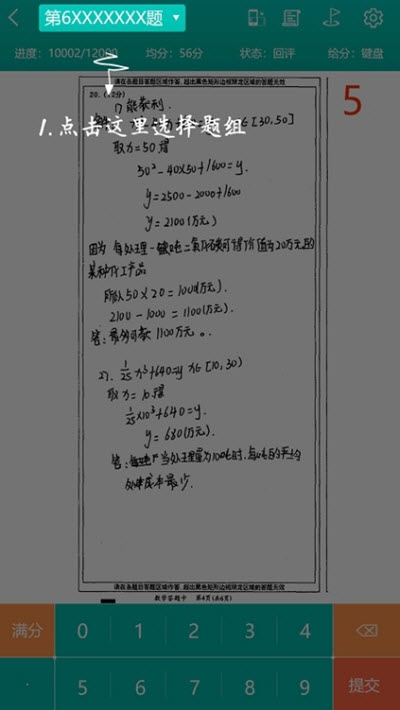 第6XXXXXXX题
进度：10002/12000 均分：56分 状态：回评 给分：键盘
请在各题目答题区域作答，超出黑色矩形边框限定区域的答题无效
5
20. (12分)
1) 能获利.
1.点击这里选择题组
[30,50]
取x=50 得
50²-40×50+1600=y.
y=2500-2000+1600
y=2100(万元)
因为 每处理一吨 二氧化碳可得价值为20万元的
某种化工产品
所以 50×20=1000(万元).
2100-1000=1100(万元).
答: 1100万元。
2). 1/25 x³+640=y x∈[10,30)
取x=10得
1/25×10³+640=y.
y=680(万元).
答: 当处理量为10吨时,每吨的平均
处理成本最少.
请在各题目答题区域作答，超出黑色矩形边框限定区域的答题无效
数学答题卡 第4页(共6页)
满分 0 1 2 3 4
· 5 6 7 8 9 提交